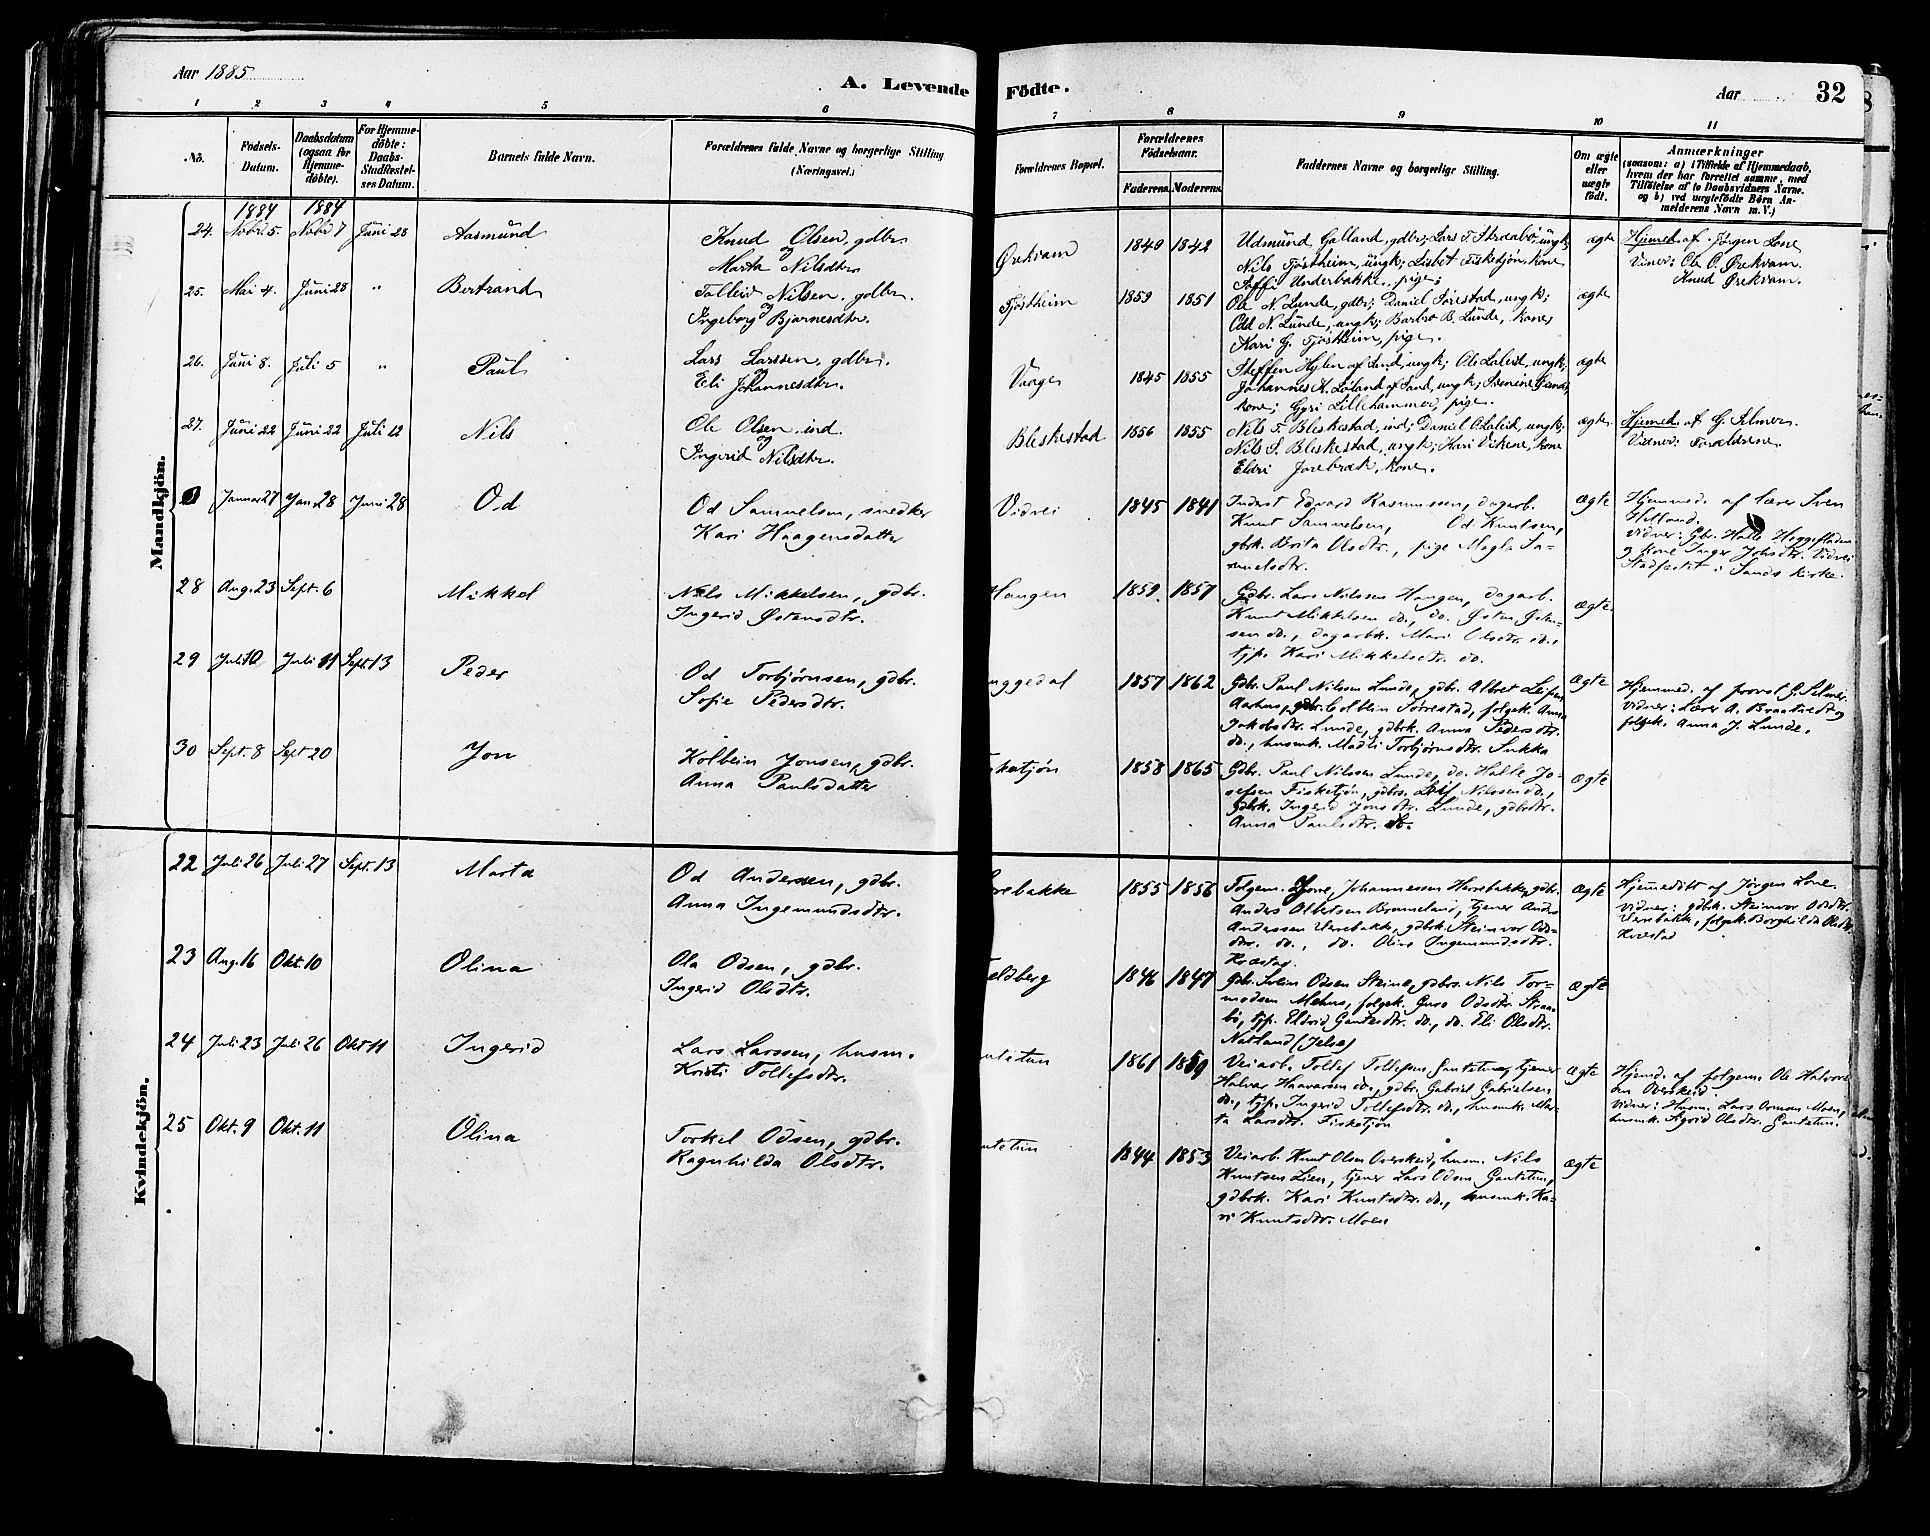 Aar 1885
A. Levende Födte.
Aar
32
1 2 3 4 5 6 7 8 9 10 11
No.
Födsels-Datum.
Daabsdatum (ogsaa for Hjemme-döbte).
For Hjemme-döbte: Daabs-Stadfæstel-ses Datum.
Barnets fulde Navn.
Forældrenes fulde Navne og borgerlige Stilling (Næringsvei.)
Forældrenes Bopæl.
Forældrenes Födselsaar.
Faderens. Moderens.
Faddernes Navne og borgerlige Stilling.
Om ægte eller uægte födt.
Anmærkninger
(saasom: a) i Tilfælde af Hjemmedaab,
hvem der har forrettet samme, med
Tilföielse af to Daabsvidners Navne.
og b) ved uægtefödte Börn An-
melderens Navn m. V.)
Mandkjön.
1884 1884
24. Novbr 5 Novbr 7 Juni 28 Aasmund
Knud Olsen, gdbr
og
Marta Nilsdtr
Ørekvam 1840 1842
Udmund Galland, gdbr; Lars T. Straabø, ungk;
Nils Tjøstheim, ungk; Lisbet Fisketjøn, kone
Underbakke, pige;
ægte
Hjemmed. af Jørgen Lone
Vidner: Ole O. Ørekvam.
Knud Ørekvam.
25. Mai 4. Juni 28 " Bertrand
Tolleiv Nilsen, gdbr.
og
Ingeborg Bjarnesdtr.
Tjøstheim 1859 1851
Ole N. Lunde, gdbr; Daniel Sørestad, ungk;
Odd N. Lunde, ungk; Barbro B. Lunde, kone;
Kari G. Tjøstheim, pige.
ægte
26. Juni 8. Juli 5 " Paul
Lars Larssen, gdbr.
og
Eli Johannesdtr.
Vaage 1845 1855
Steffen Hylen af Sand, ungk; Ole Laleid, ungk;
Johannes H. Løland af Sand, ungk;
kone; Gyri Lillehammer, pige.
ægte
27. Juni 22 Juni 22 Juli 12 Nils
Ole Olsen ind.
og
Ingerid Nilsdtr.
Bleskestad 1856 1855
Nils T. Bleskestad, ind; Daniel O. Laleid, ungk;
Nils S. Bleskestad, ungk; Kari Vikene, kone
Eldri Jorebræk, kone.
ægte
Hjemmed. af G. Selmer.
Vidner: Forældrene.
Januar 27 Jan. 28 Juni 28 Od
Od Samuelsen, snedker
Kari Haagensdatter
Vidvei 1845 1841
Inderst Edvard Rasmussen, dagarb.
Knut Samuelsen, Od Knutsen,
gbrk. Brita Olsdtr., pige Magla Sa-
muelsdtr.
ægte
Hjemmed. af lærer Sven
Helland.
Vidner: Gbr. Halle Heggestaden
og kone Inger Johsdtr. Vidvei
Stadfæstet i Sands kirke.
28 Aug. 23 Sept. 6 Mikkel
Nils Mikkelsen, gdbr.
Ingerid Østensdtr.
Haugen 1859. 1857
Gdbr. Lars Nilssen Haugen, dagarb.
Knut Mikkelsen do., do. Østen Østen-
sen do., dagarbk. Mari Olsdtr. do.,
tjp. Kari Mikkelsdtr. do.
ægte
29 Juli 10 Juli 11 Sept. 13 Peder
Od Torbjørnsen, gdbr.
Sofie Pedersdtr.
uggedal 1857 1862
Gdbr. Paul Nilssen Lunde, gdbr. Albret Leifsen
Aarhus, gdbr. Kolbein Sørrestad, folgek. Anna
Jakobsdtr. Lunde, gdbrk. Anna Pedersdtr.
do., husmk. Madli Torbjørnsdtr. Sukka
ægte
Hjemmed. af provst G. Selmer.
Vidner: Lærer A. Braatvedt og
folgek. Anna J. Lunde.
30 Sept. 8 Sept 20 Jon
Kolbein Jonsen, gdbr.
Anna Paulsdatter
sketjøn 1858 1865
Gdbr. Paul Nilssen Lunde, do. Halle Jo-
sefsen Fisketjøn, gdbrs. Leif Nilssen do.,
gdbrk. Ingerid Jonsdtr. Lunde, gdbrdtr.
Anna Paulsdtr. do.
ægte
Kvindekjön.
22 Juli 26 Juli 27 Sept. 13 Marta
Od Andersen, gdbr.
Anna Ingemundsdtr.
rebakke 1855 1856
Folgem. Sjovre Johannessen Herrebakke, gdbr.
Anders Albertsen Brommeland, tjener Anders
Anderssen Verebakke, gdbrk. Steinvor Ods-
dtr. do., do. Oline Ingemundsdtr.
Hræstad
ægte
Hjemmedöbt af Jørgen Lone
Vidner: gdbrk. Steinvor Odsdtr.
Verebakke, folgek. Borghilda Olsdtr.
Hræstad
23 Aug. 16 Okt. 10 Olina
Ola Odsen, gdbr.
Ingerid Olsdtr.
eldberg 1846 1847
Gdbr. Svein Odsen Steine, gdbrs. Nils Tor-
modsen Mehus, folgek. Guro Odsdtr. Straa-
bø, tjp. Eldrid Gautesdtr. do., do. Eli Olsdtr.
Natland (Jelse)
ægte
24 Juli 23 Juli 26 Okt 11 Ingerid
Lars Larssen, husm.
Kristi Tollefsdtr.
utetun 1861 1859
Veiarb. Tollef Tollefsen Gautetun, tjener
Halvar Haavarsen do., gdbr. Gabriel Gabrielsen
do., tjp. Ingerid Tollefsdtr. do., husmk. Mar-
ta Larsdtr. Fisketjøn
ægte
Hjemd. af folgem. Ole Halvor-
sen Overskeid.
Vidner: Husm. Lars Orman Moen,
husmk. Agrid Olsdtr. Gautetun.
25 Okt. 9 Okt. 11 Olina
Torkel Odsen, gdbr.
Ragnhilda Olsdtr.
utetun 1844 1853
Veiarb. Knut Olsen Overskeid, husm. Nils
Knutsen Lien, tjener Lars Odsen Gautetun,
gdbrk. Kari Knutsdtr. do., husmk. Ka-
ri Knutsdtr. Moen
ægte